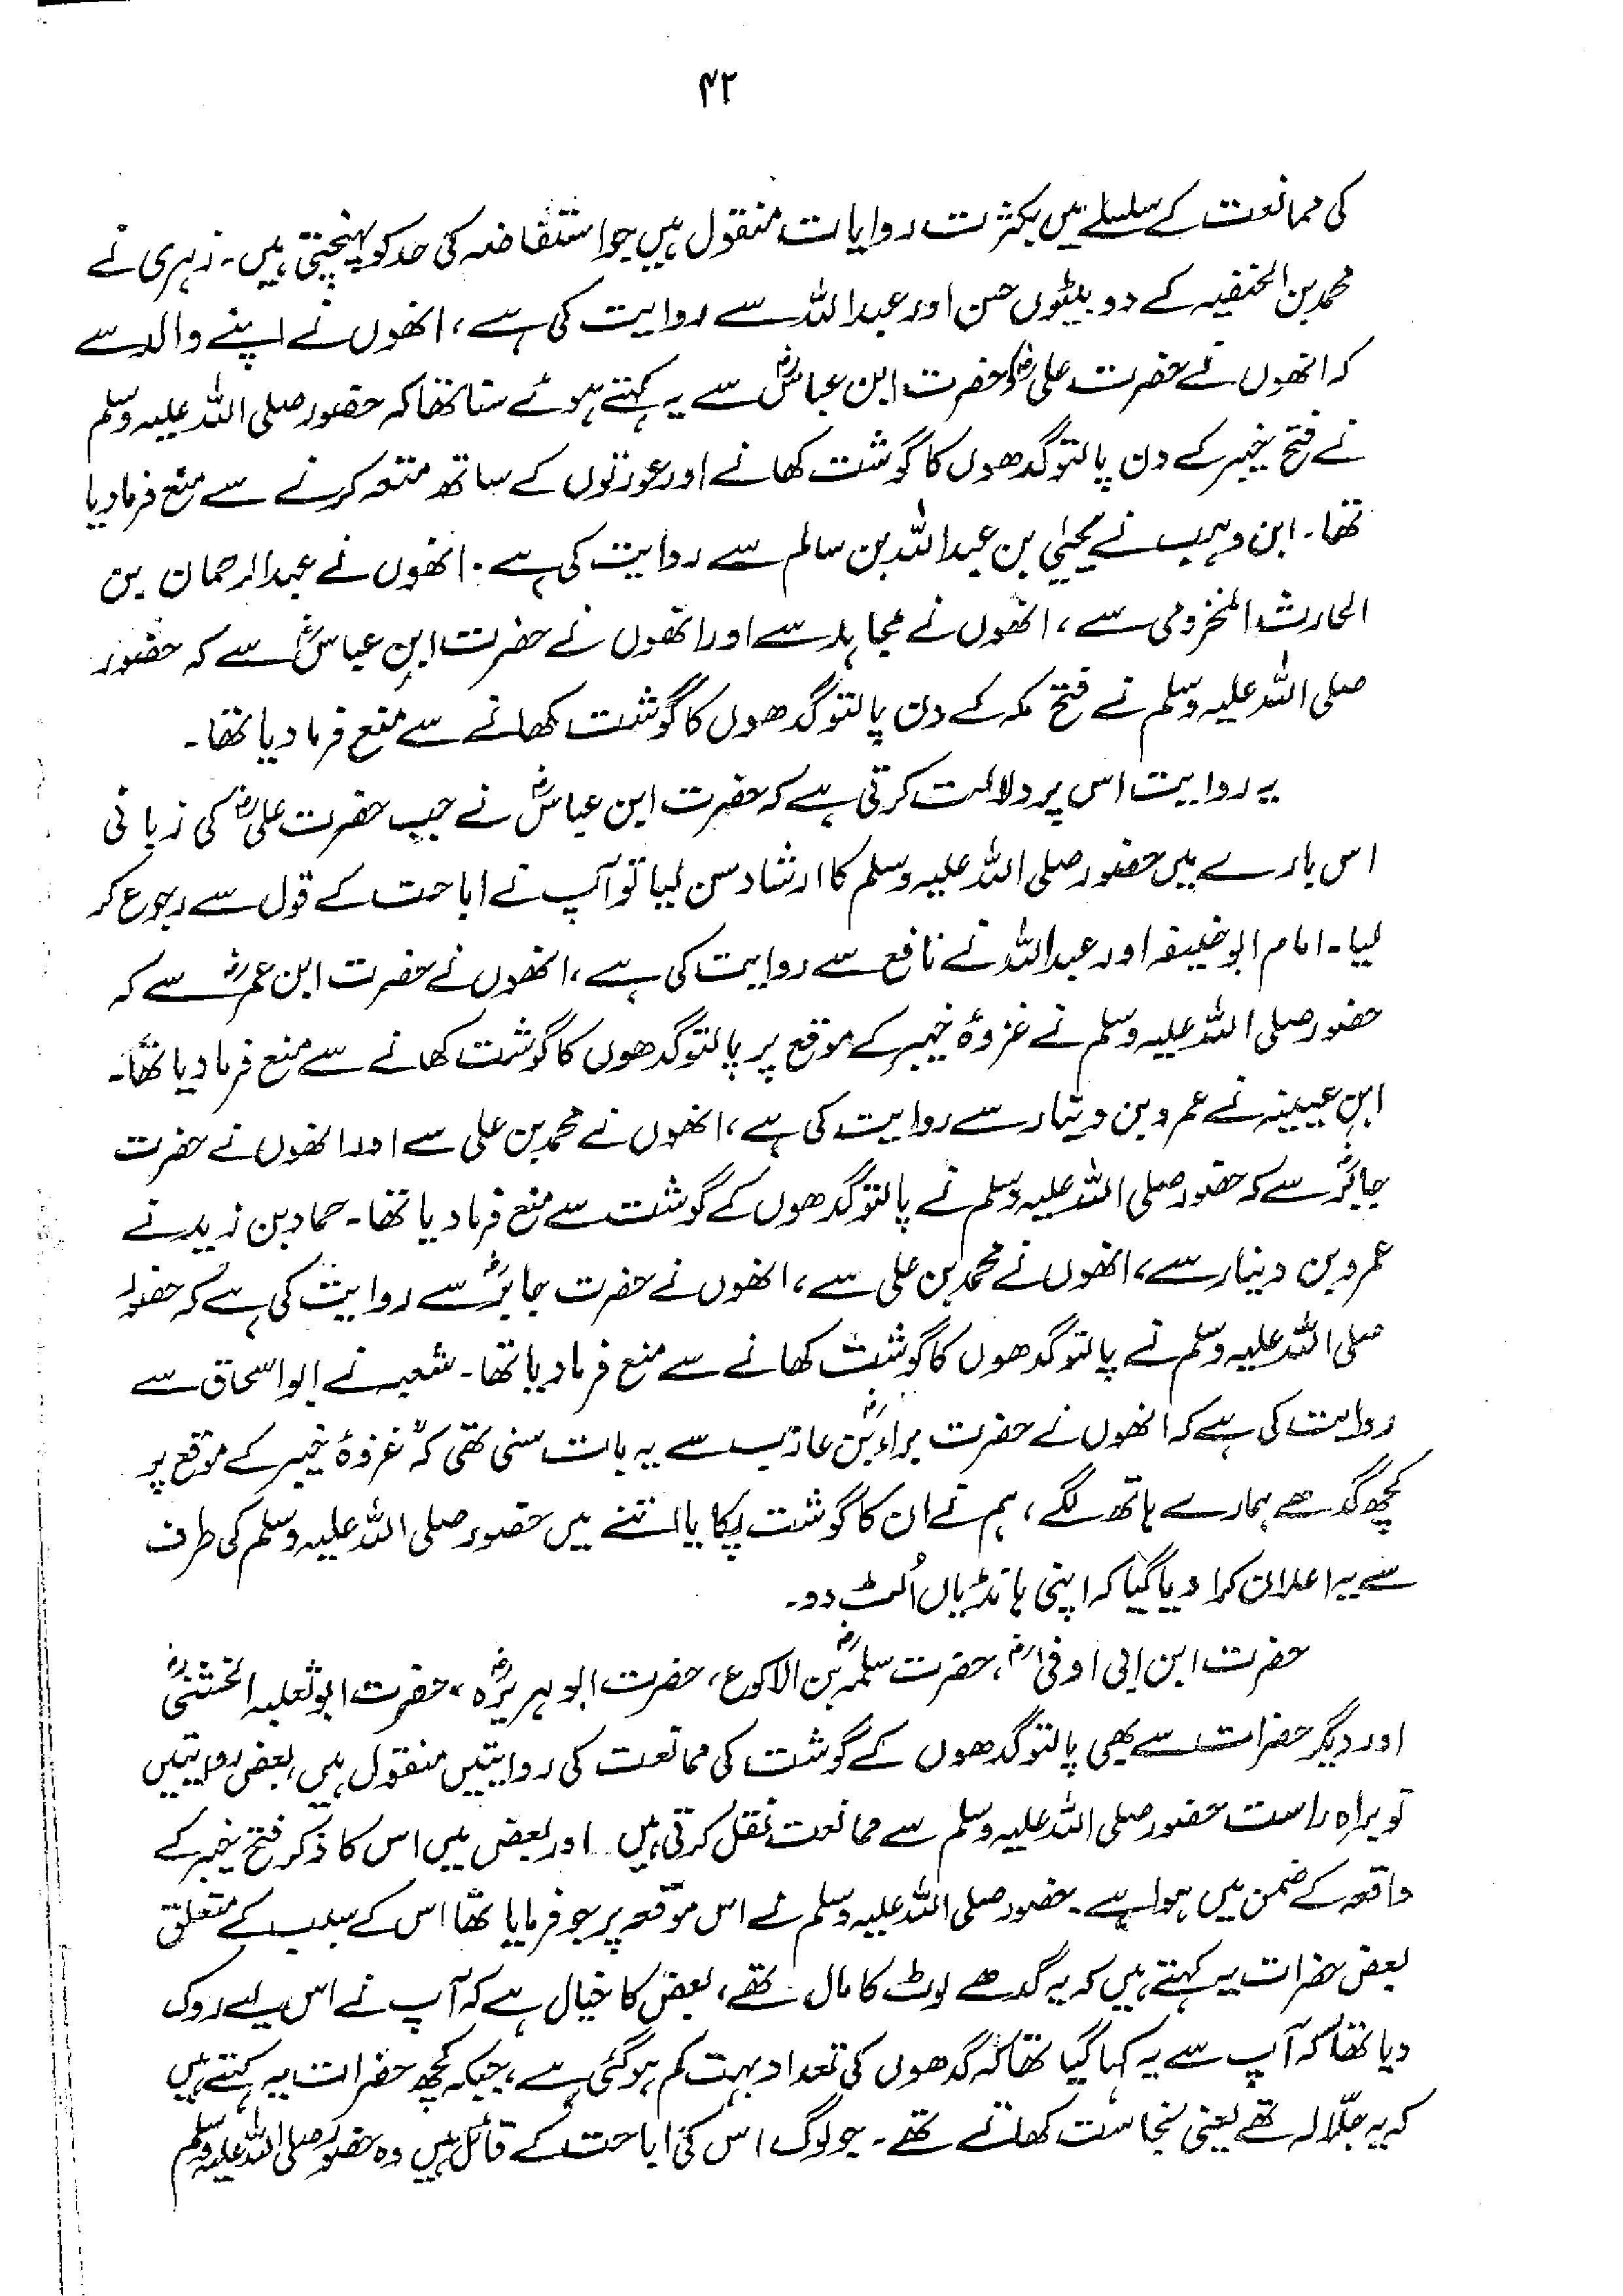 ۴۲
کی ممانعت کے سلسلے میں بکثرت روایات منقول ہیں جو استفاضہ کی حد کو پہنچتی ہیں۔ زہری نے
محمد بن الحنفیہ کے دو بیٹوں حسن اور عبداللہ سے روایت کی ہے، انھوں نے اپنے والد سے
کہ انھوں نے حضرت علیؓ کو حضرت ابن عباسؓ سے یہ کہتے ہوئے سنا تھا کہ حضور صلی اللہ علیہ وسلم
نے فتح خیبر کے دن پالتو گدھوں کا گوشت کھانے اور عورتوں کے ساتھ متعہ کرنے سے منع فرما دیا
تھا۔ ابن وہب نے یحییٰ بن عبداللہ بن سالم سے روایت کی ہے۔ انھوں نے عبدالرحمان بن
الحارث المخزومی سے، انھوں نے مجاہد سے اور انھوں نے حضرت ابن عباسؓ سے کہ حضور
صلی اللہ علیہ وسلم نے فتح مکہ کے دن پالتو گدھوں کا گوشت کھانے سے منع فرما دیا تھا۔
یہ روایت اس پر دلالت کرتی ہے کہ حضرت ابن عباسؓ نے جب حضرت علیؓ کی زبانی
اس بارے میں حضور صلی اللہ علیہ وسلم کا ارشاد سن لیا تو آپ نے اباحت کے قول سے رجوع کر
لیا۔ امام ابوحنیفہ اور عبداللہ نے نافع سے روایت کی ہے، انھوں نے حضرت ابن عمرؓ سے کہ
حضور صلی اللہ علیہ وسلم نے غزوۂ خیبر کے موقع پر پالتو گدھوں کا گوشت کھانے سے منع فرما دیا تھا۔
ابن عیینہ نے عمرو بن دینار سے روایت کی ہے، انھوں نے محمد بن علی سے اور انھوں نے حضرت
جابرؓ سے کہ حضور صلی اللہ علیہ وسلم نے پالتو گدھوں کے گوشت سے منع فرما دیا تھا۔ حماد بن زید نے
عمرو بن دینار سے، انھوں نے محمد بن علی سے، انھوں نے حضرت جابرؓ سے روایت کی ہے کہ حضور
صلی اللہ علیہ وسلم نے پالتو گدھوں کا گوشت کھانے سے منع فرما دیا تھا۔ شعبہ نے ابواسحاق سے
روایت کی ہے کہ انھوں نے حضرت براءؓ بن عازب سے یہ بات سنی تھی کہ غزوۂ خیبر کے موقع پر
کچھ گدھے ہمارے ہاتھ لگے، ہم نے ان کا گوشت پکایا اتنے میں حضور صلی اللہ علیہ وسلم کی طرف
سے یہ اعلان کرا دیا گیا کہ اپنی ہانڈیاں اُلٹ دو۔
حضرت ابن ابی اوفیٰؓ، حضرت سلمہؓ بن الاکوع، حضرت ابوہریرہؓ، حضرت ابوثعلبہ الخشنیؓ
اور دیگر حضرات سے بھی پالتو گدھوں کے گوشت کی ممانعت کی روایتیں منقول ہیں، بعض روایتیں
تو براہِ راست حضور صلی اللہ علیہ وسلم سے ممانعت نقل کرتی ہیں اور بعض میں اس کا ذکر فتح خیبر کے
واقعہ کے ضمن میں ہوا ہے۔ حضور صلی اللہ علیہ وسلم نے اس موقعہ پر جو فرمایا تھا اس کے سبب کے متعلق
بعض حضرات یہ کہتے ہیں کہ یہ گدھے لوٹ کا مال تھے، بعض کا خیال ہے کہ آپ نے اس لیے روک
دیا تھا کہ آپ سے یہ کہا گیا تھا کہ گدھوں کی تعداد بہت کم ہو گئی ہے، جبکہ کچھ حضرات یہ کہتے ہیں
کہ یہ جلّالہ تھے یعنی نجاست کھاتے تھے۔ جو لوگ اس کی اباحت کے قائل ہیں وہ حضور صلی اللہ علیہ وسلم